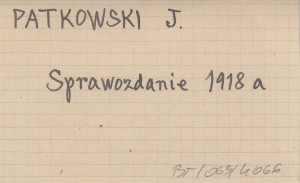 PATKOWSKI J.
Sprawozdanie 1918 a
BJ/063/4066